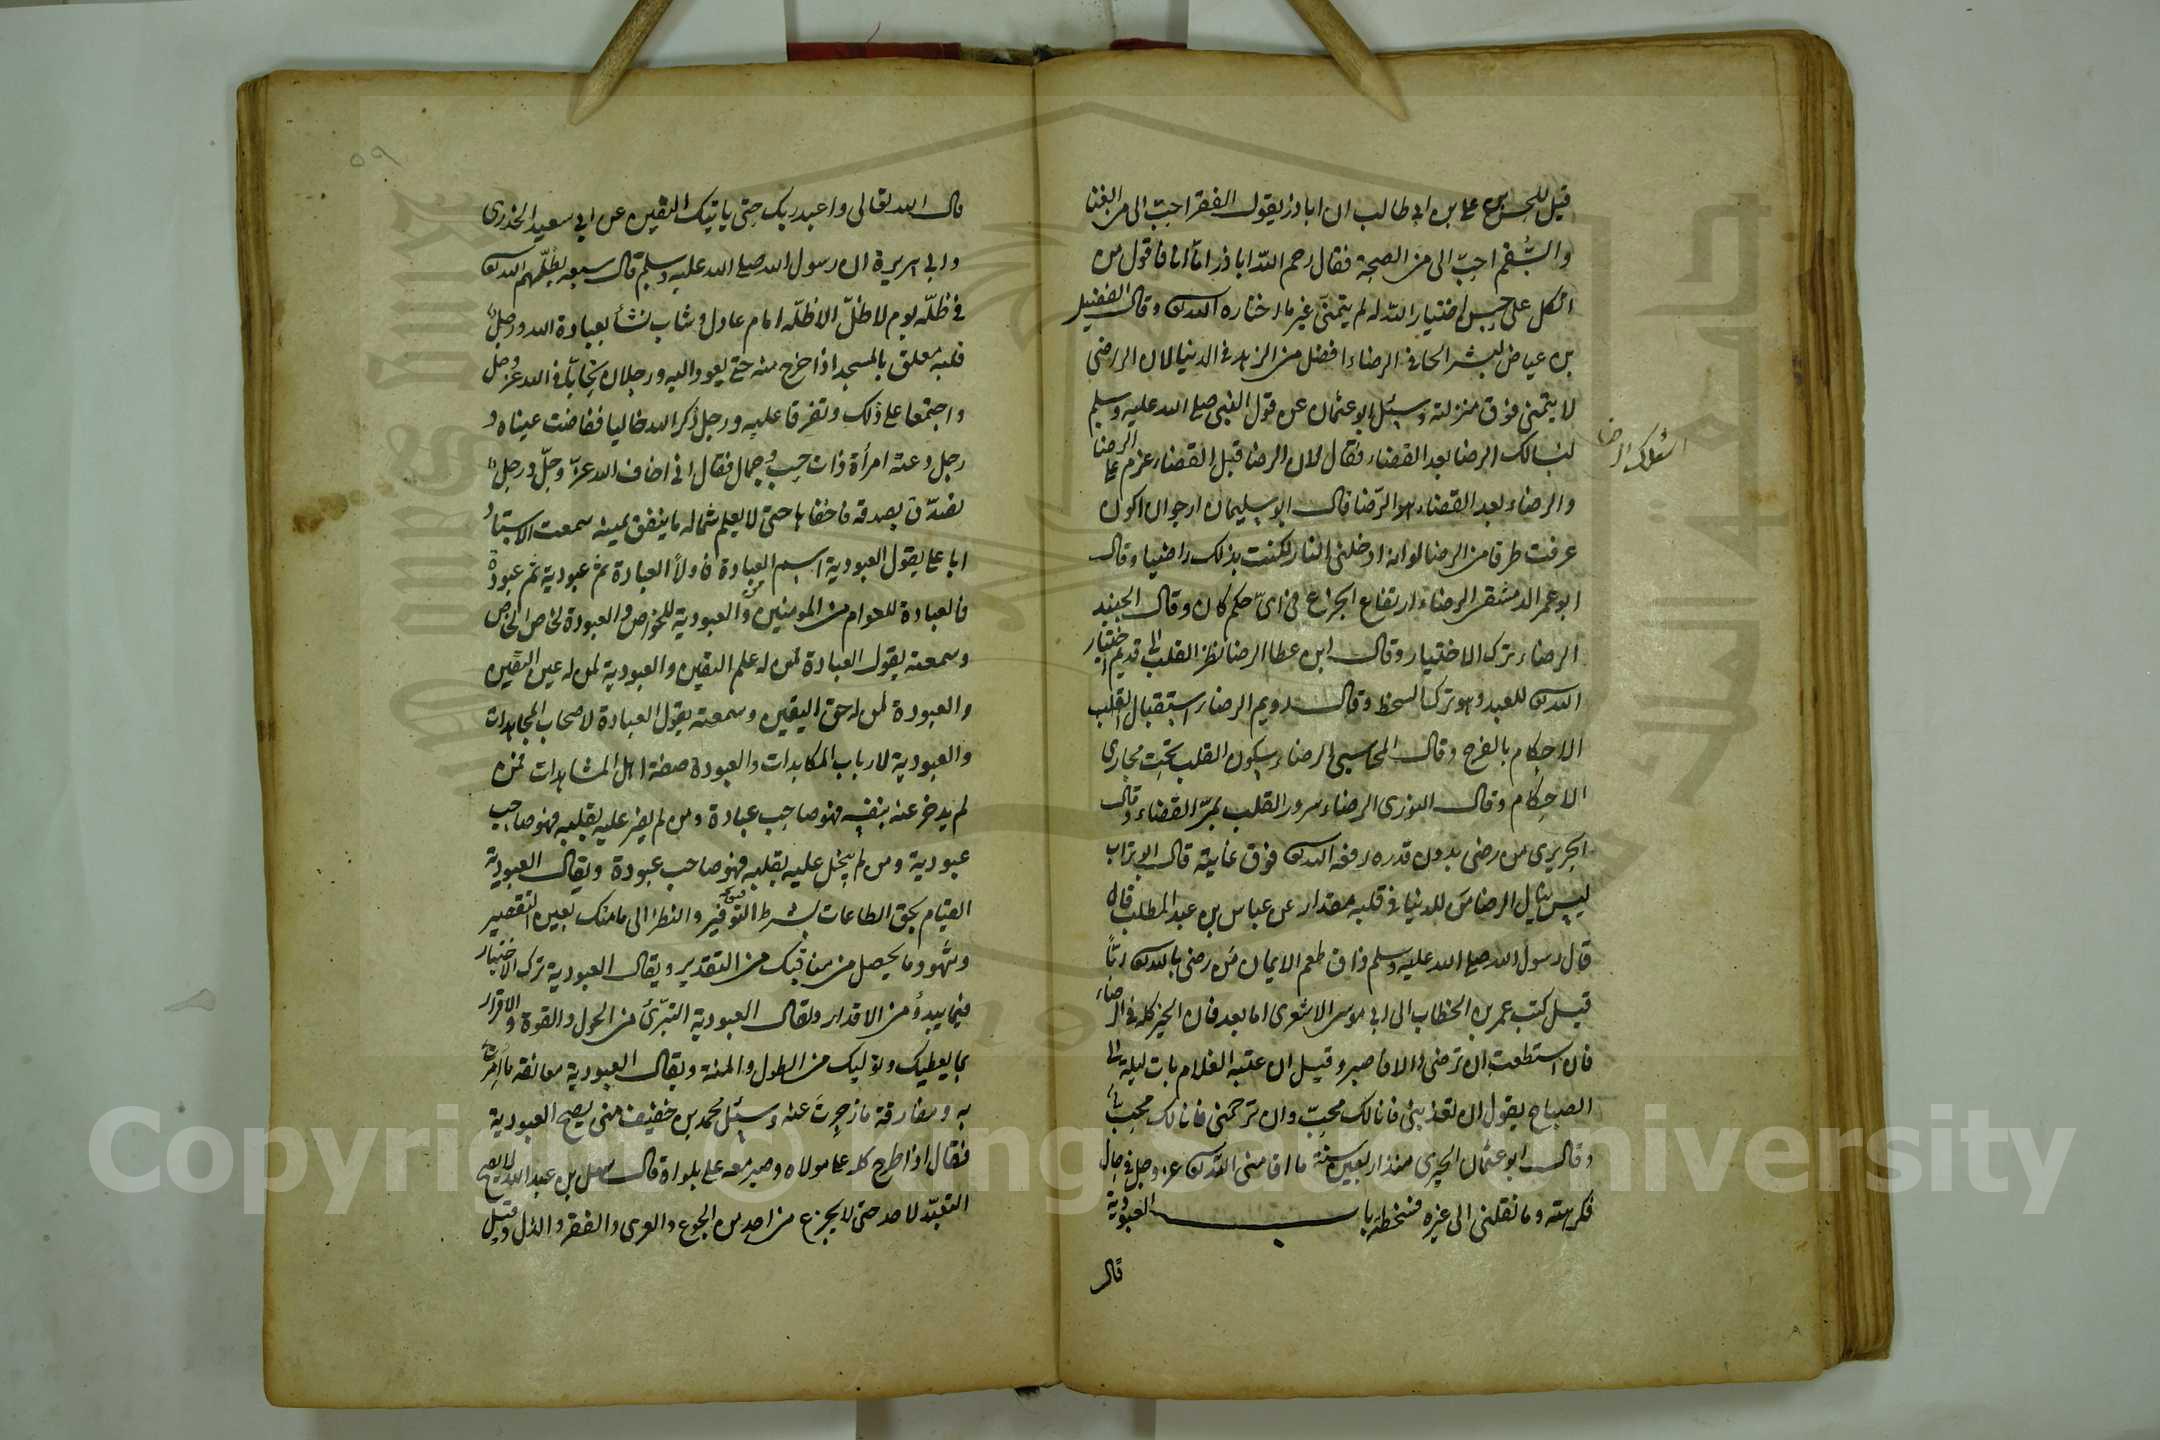 قيل للحسن بن علي بن ابي طالب ان اباذر يقول الفقر احب الى من الغنا
والسقم احب الى من الصحة فقال رحم الله اباذر اما انا فاقول من
اتكل على حسن اختيار الله له لم يتمن غير ما اختاره الله وقال الفضيل
بن عياض لبشر الحافي الرضاء افضل من الزهد في الدنيا لان الراضي
لا يتمنى فوق منزلته وسئل ابو عثمان عن قول النبي صلى الله عليه وسلم
اسألك الرضا بعد القضاء فقال لان الرضا قبل القضاء عزم على الرضا
والرضاء بعد القضاء هو الرضا قال ابو سليمان ارجو ان اكون
عرفت طرفا من الرضا لو انه ادخلني النار لكنت بذلك راضيا وقال
ابو عمر الدمشقي الرضاء ارتفاع الجزع في اى حكم كان وقال الجنيد
الرضاء ترك الاختيار وقال ابن عطا الرضا نظر القلب الى قديم اختيار
الله للعبد وهو ترك السخط وقال رويم الرضاء استقبال القلب
الاحكام بالفرح وقال المحاسبي الرضاء سكون القلب تحت مجارى
الاحكام وقال النورى الرضاء سرور القلب بمر القضاء وقال
الجريرى من رضى بدون قدره رفعه الله فوق غايته قال ابو تراب
ليس ينال الرضا من للدنيا في قلبه مقدار عن عباس بن عبد المطلب قال
قال رسول الله صلى الله عليه وسلم ذاق طعم الايمان من رضى بالله ربا
قيل كتب عمر بن الخطاب الى ابي موسى الاشعرى اما بعد فان الخير كله في الرضاء
فان استطعت ان ترضى والا فاصبر وقيل ان عتبة الغلام بات ليلة الى
الصباح يقول ان تعذبني فانا لك محب وان ترحمني فانا لك محب
وقال ابو عثمان الحيرى منذ اربعين سنة ما اقامني الله عز وجل في حال
فكرهته وما نقلني الى غيره فسخطه باب العبودية
قال
اسئلك الرضا
٥٩
قال الله تعالى واعبد ربك حتى ياتيك اليقين عن ابي سعيد الخذرى
وابي هريرة ان رسول الله صلى الله عليه وسلم قال سبعة يظلهم الله
في ظله يوم لا ظل الا ظله امام عادل وشاب نشأ بعبادة الله ورجل
قلبه معلق بالمسجد اذا خرج منه حتى يعود اليه ورجلان تحابا في الله عز وجل
واجتمعا على ذلك وتفرقا عليه ورجل ذكر الله خاليا ففاضت عيناه و
رجل دعته امرأة ذات حسب وجمال فقال اني اخاف الله عز وجل ورجل
تصدق بصدقة فاخفاها حتى لا يعلم شماله ما ينفق يمينه سمعت الاستاد
ابا على يقول العبودية اسم العبادة فاولا العبادة ثم عبودية ثم عبودة
فالعبادة للعوام من المومنين والعبودية للخواص والعبودة لخاص الخاص
وسمعته يقول العبادة لمن له علم اليقين والعبودية لمن له عين اليقين
والعبودة لمن له حق اليقين وسمعته يقول العبادة لاصحاب المجاهدات
والعبودية لارباب المكابدات والعبودة صفة اهل المشاهدات فمن
لم يدخر عنه نفسه فهو صاحب عبادة ومن لم يضن عليه بقلبه فهو صاحب
عبودية ومن لم يبخل عليه بقلبه فهو صاحب عبودة ويقال العبودية
القيام بحق الطاعات بشرط التوفير والنظر الى ما منك بعين التقصير
وشهود ما يحصل من مناقبك من التقدير ويقال العبودية ترك الاختيار
فيما يبدؤ من الاقدار ويقال العبودية التبرئ من الحول والقوة والاقرار
بما يعطيك ويوليك من الطول والمنة ويقال العبودية معانقة ما امرت
به ومفارقة ما زجرت عنه وسئل محمد بن خفيف متى يصح العبودية
فقال اذا طرح كله على مولاه وصبر معه على بلواه قال سهل بن عبد الله لا يصح
التعبد لاحد حتى لا يجزع من اربع من الجوع والعرى والفقر والذل وقيل
Copyright © King Saud University